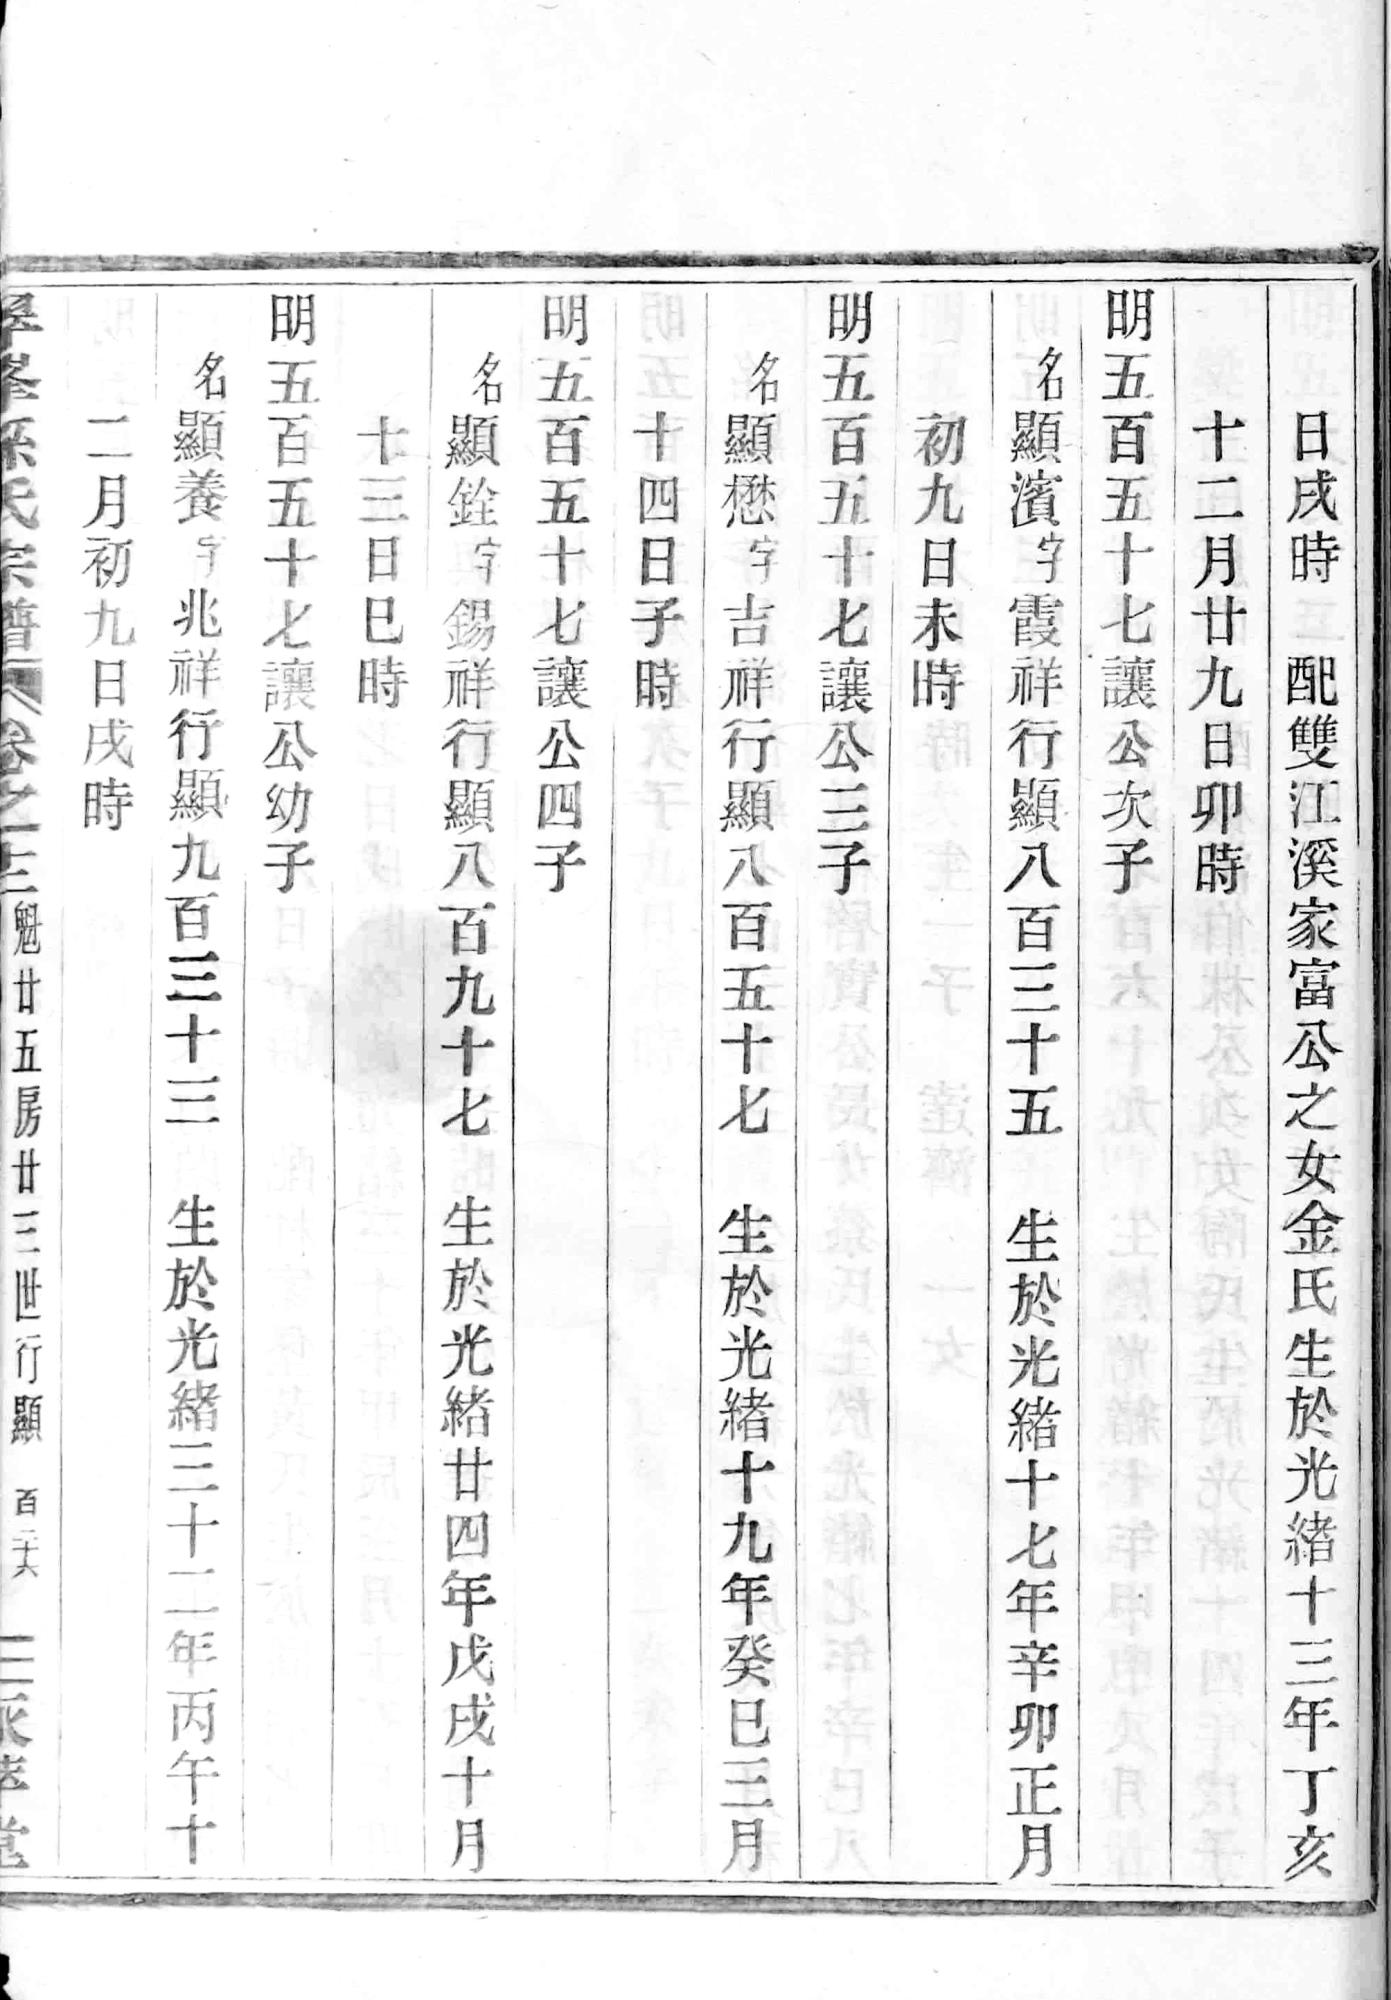 日戌時　配雙江溪家富公之女金氏生於光緒十三年丁亥
十二月廿九日卯時
明五百五十七讓公次子
名顯濱字霞祥行顯八百三十五　生於光緒十七年辛卯正月
初九日未時
明五百五十七讓公三子
名顯懋字吉祥行顯八百五十七　生於光緒十九年癸巳三月
十四日子時
明五百五十七讓公四子
名顯銓字錫祥行顯八百九十七　生於光緒廿四年戊戌十月
十三日巳時
明五百五十七讓公幼子
名顯養字兆祥行顯九百三十三　生於光緒三十二年丙午十
二月初九日戌時
孫氏宗譜　卷之十三　魁廿五房廿三世行顯　百二十六